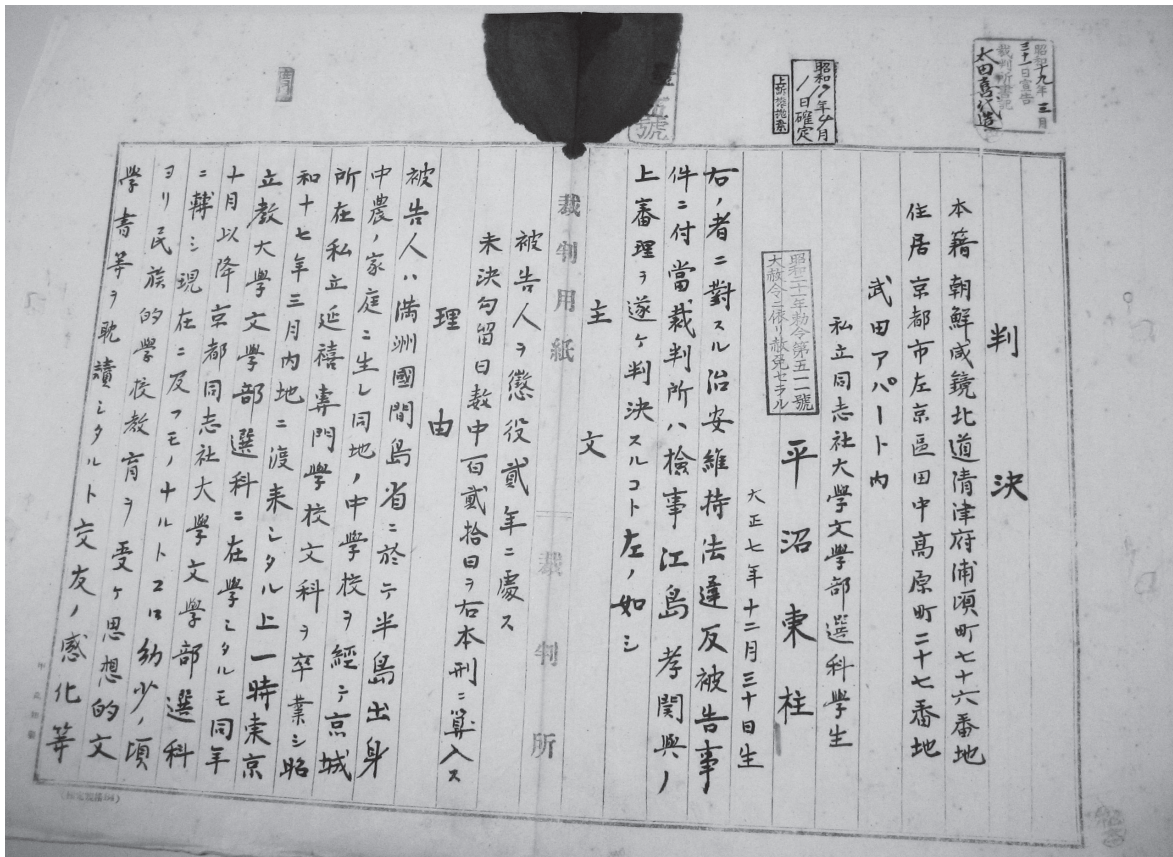 昭和十九年三月
三十一日宣告
裁判所書記
太田喜代造
昭和19年4月
1日確定
判決
本籍 朝鮮咸鏡北道清津府浦項町七十六番地
住居 京都市左京區田中高原町二十七番地
武田アパート内
私立同志社大學文學部選科學生
昭和二十年勅令第五一一號
大赦令ニ依リ赦免セラル
平沼東柱
大正七年十二月三十日生
右ノ者ニ對スル治安維持法違反被告事
件ニ付當裁判所ハ檢事江島孝關與ノ
上審理ヲ遂ケ判決スルコト左ノ如シ
主文
裁判用紙 裁判所
被告人ヲ懲役貳年ニ處ス
未決勾留日數中百貳拾日ヲ右本刑ニ算入ス
理由
被告人ハ滿洲國間島省ニ於テ半島出身
中農ノ家庭ニ生レ同地ノ中學校ヲ經テ京城
所在私立延禧專門學校文科ヲ卒業シ昭
和十七年三月内地ニ渡來シタル上一時東京
立教大學文學部選科ニ在學シタルモ同年
十月以降京都同志社大學文學部選科
ニ轉シ現在ニ及フモノナルトコロ幼少ノ頃
ヨリ民族的學校教育ヲ受ケ思想的文
學書等ヲ耽讀シタルト交友ノ感化等